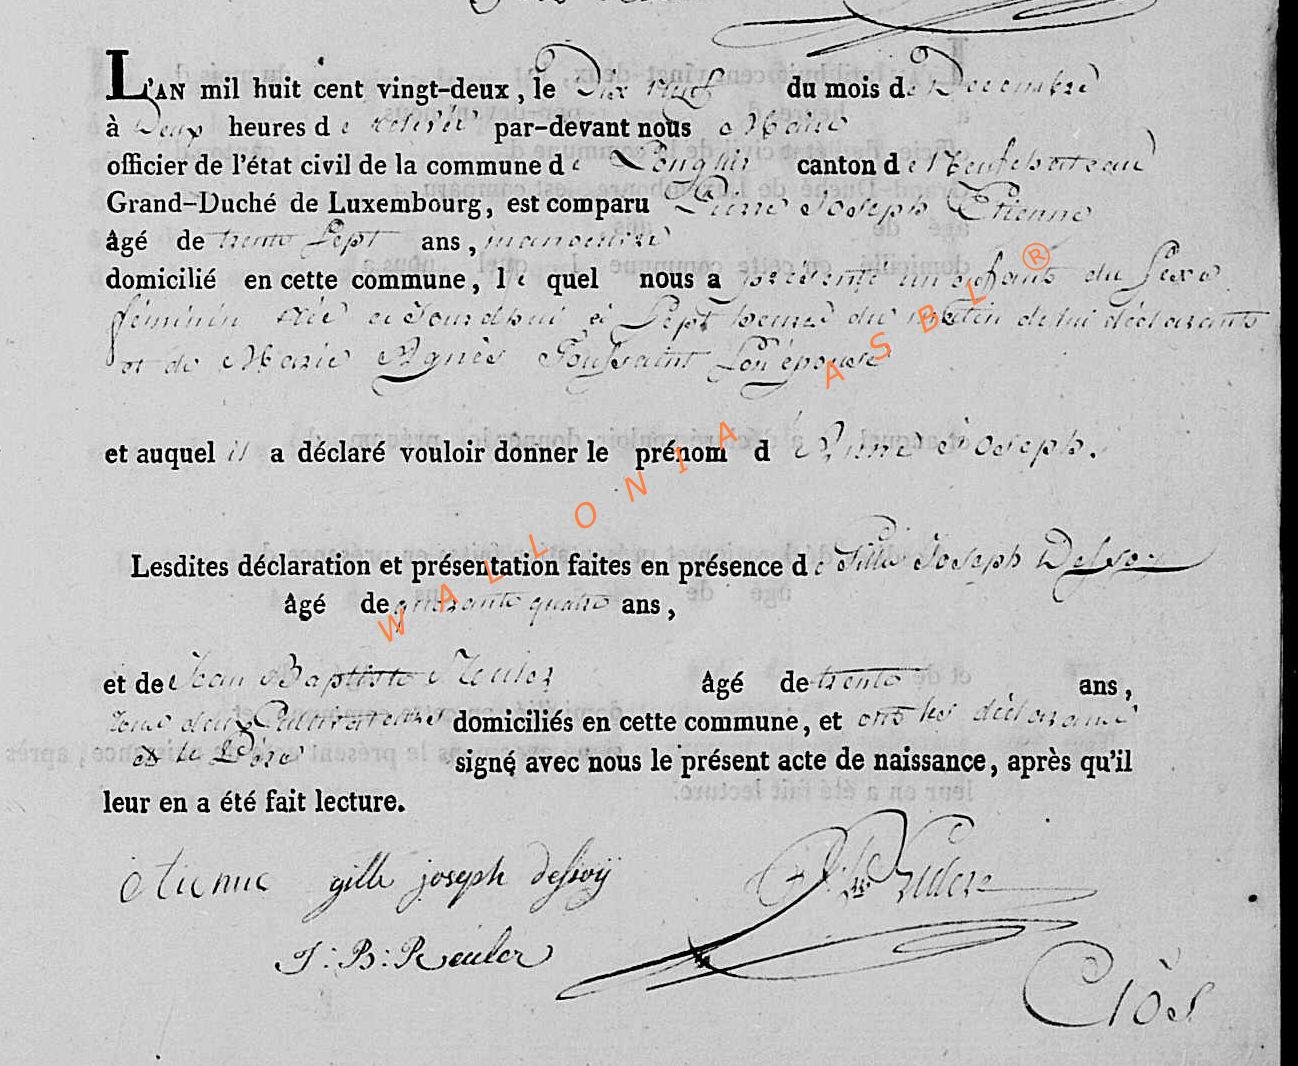 L'AN mil huit cent vingt-deux, le Dix neuf du mois de Decembre
à Deux heures de relevée par-devant nous Maire
officier de l'état civil de la commune de Longlier canton de Neufchateau
Grand-Duché de Luxembourg, est comparu Pierre Joseph Etienne
âgé de trente Sept ans, manoeuvre
domicilié en cette commune, le quel nous a présenté un enfant du Sexe
féminin née ajourdhui à Sept heures du matin de lui déclarant
et de Marie Agnès Toussaint Son épouse
et auquel il a déclaré vouloir donner le prénom d Joseph.
Lesdites déclaration et présentation faites en présence de Gille Joseph Dessoy
âgé de quarante quatre ans,
et de Jean Baptiste Reuler âgé de trente ans,
tous deux Cultivateurs domiciliés en cette commune, et ont les déclarants
et le Père signé avec nous le présent acte de naissance, après qu'il
leur en a été fait lecture.
étienne gille joseph dessoÿ
J:B:Reuler
Clôs
WALLONIA ASBL ®